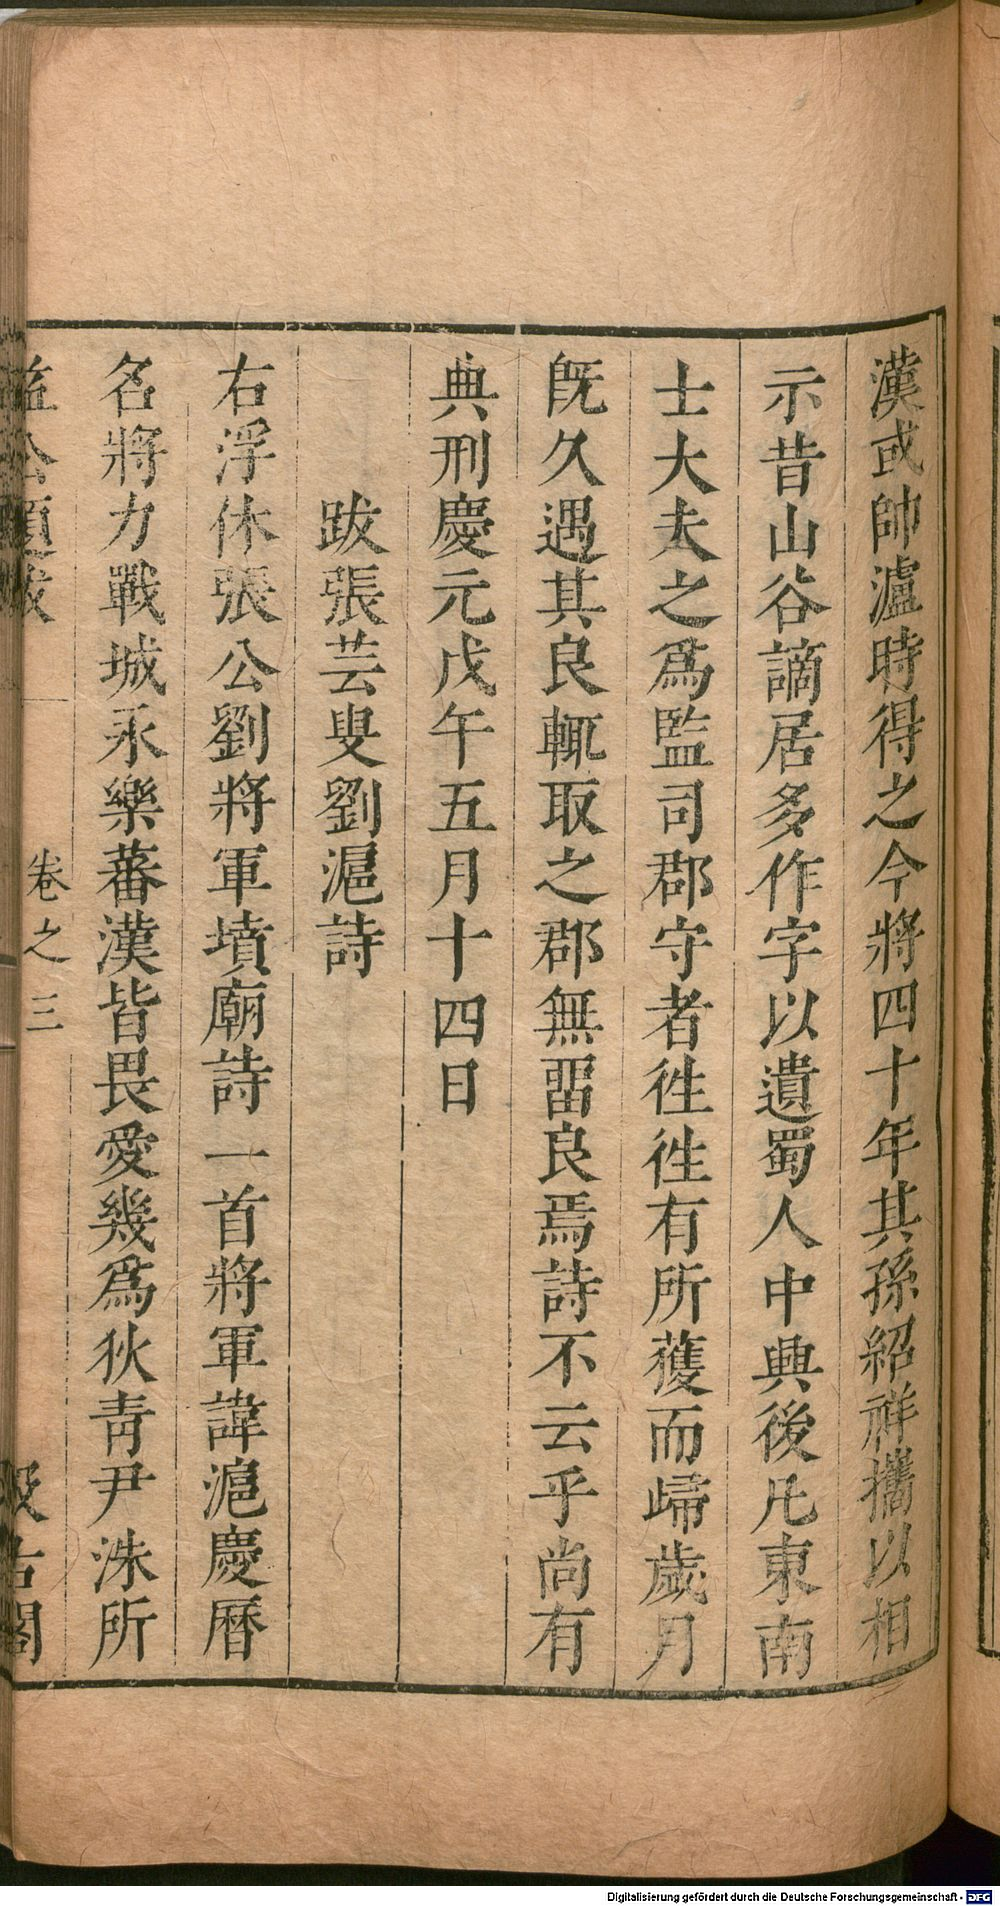 漢或帥瀘時得之今將四十年其孫紹祥攜以相
示昔山谷謫居多作字以遺蜀人中興後凡東南
士大夫之爲監司郡守者徃徃有所獲而歸歲月
旣久遇其良輒取之郡無畱良焉詩不云乎尚有
典刑慶元戊午五月十四日
跋張芸叟劉滬詩
右浮休張公劉將軍墳廟詩一首將軍諱滬慶曆
名將力戰城永樂蕃漢皆畏愛幾爲狄青尹洙所
益公題跋 卷之三 汲古閣
Digitalisierung gefördert durch die Deutsche Forschungsgemeinschaft - DFG